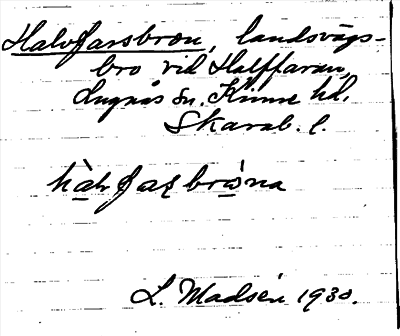 Halvfarsbron, landsvägs-
bro vid Halffaran,
Lugnås sn. Kinne hd.
Skarab. l.
hàlvfaʂbrὼna
L. Madsén 1930.